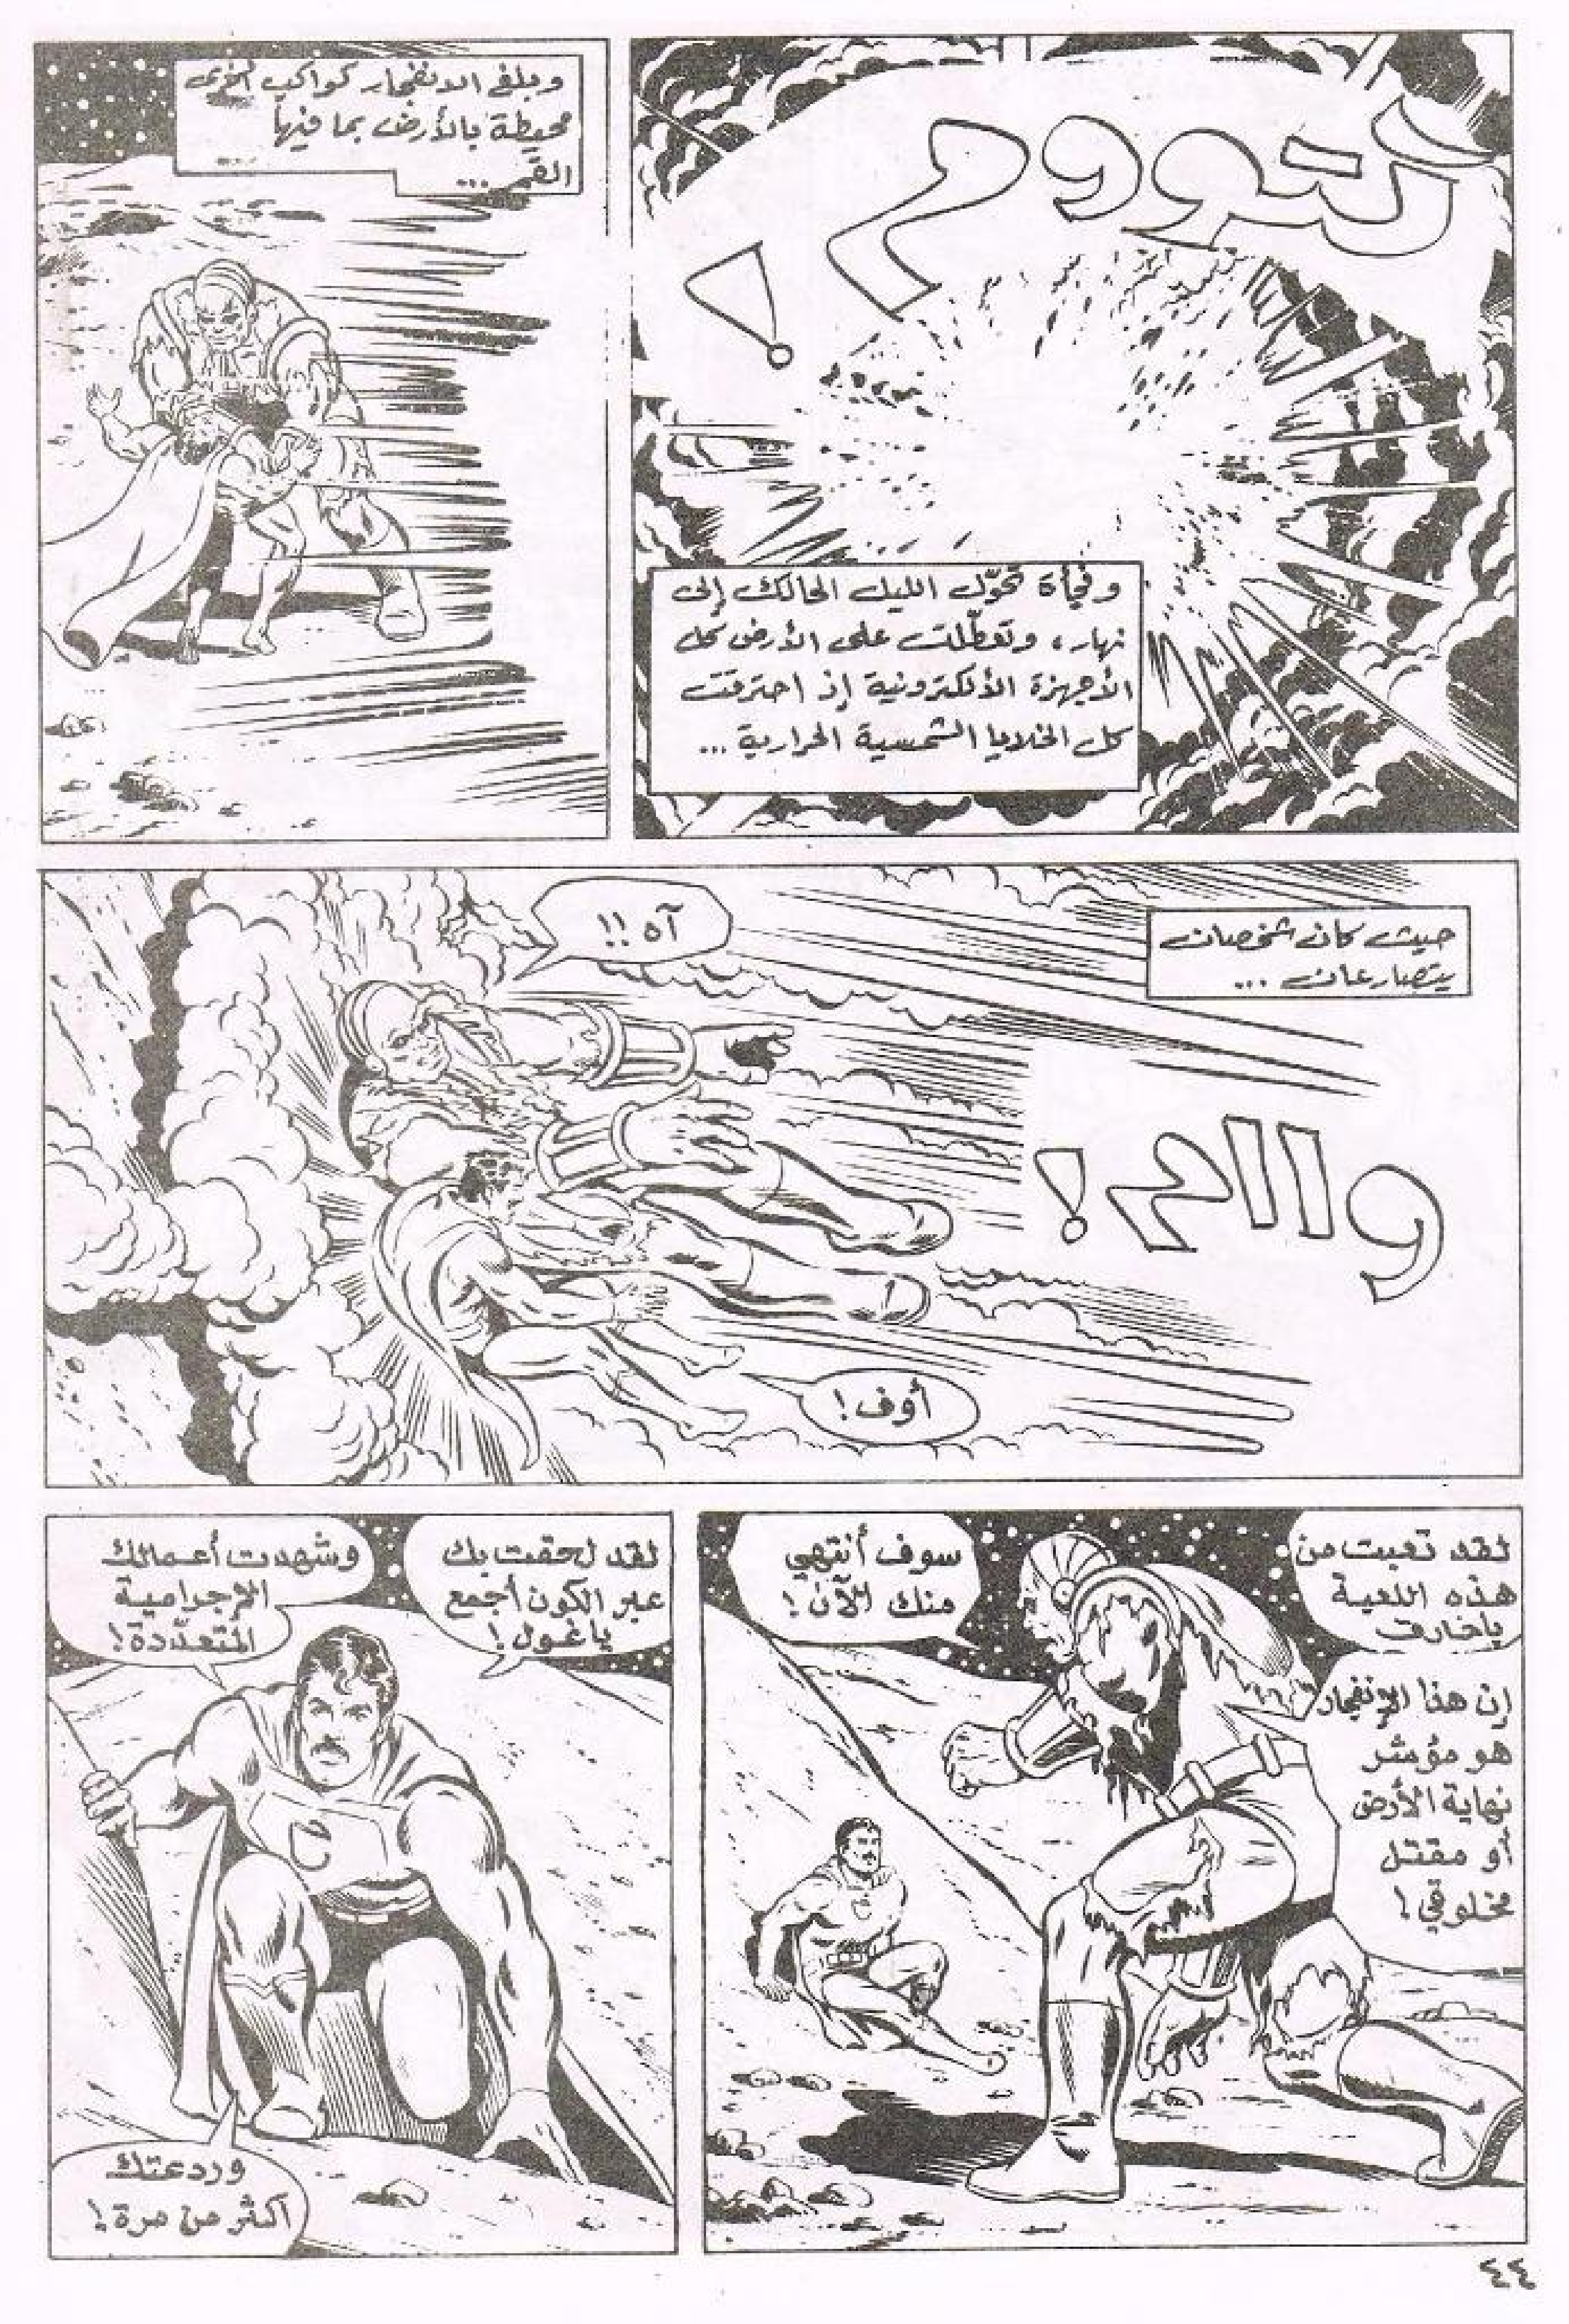 كتووم!
وفجأة تحوّل الليل الحالك إلى
نهار، وتعطّلت على الأرض كل
الأجهزة الألكترونية إذ احترقت
كل الخلايا الشمسية الحرارية ...
وبلغ الانفجار كواكب أخرى
محيطة بالأرض بما فيها
القمر ...
حيث كان شخصان
يتصارعان ...
آه !!
واام!
أوف!
لقد تعبت من
هذه اللعبة
ياخارق
إن هذا الإنفجار
هو مؤشر
نهاية الأرض
أو مقتل
مخلوقي!
سوف أنتهي
منك الآن!
لقد لحقت بك
عبر الكون أجمع
ياغول!
وشهدت أعمالك
الإجرامية
المتعدّدة!
وردعتك
أكثر من مرة!
٤٤